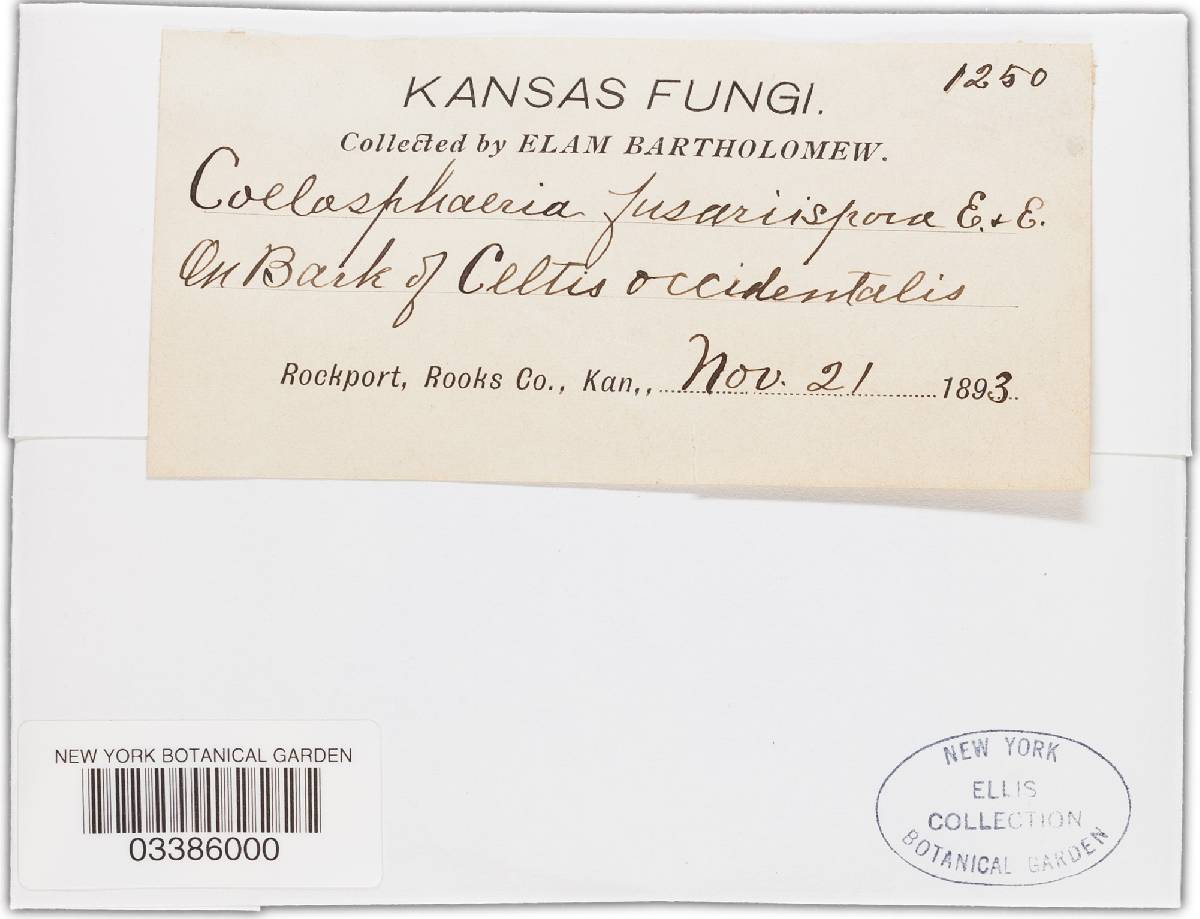 1250
KANSAS FUNGI.
Collected by ELAM BARTHOLOMEW.
Coelosphaeria fusariispora E. & E.
On Bark of Celtis occidentalis
Rockport, Rooks Co., Kan,, Nov. 21 1893
NEW YORK BOTANICAL GARDEN
03386000
NEW YORK
ELLIS
COLLECTION
BOTANICAL GARDEN